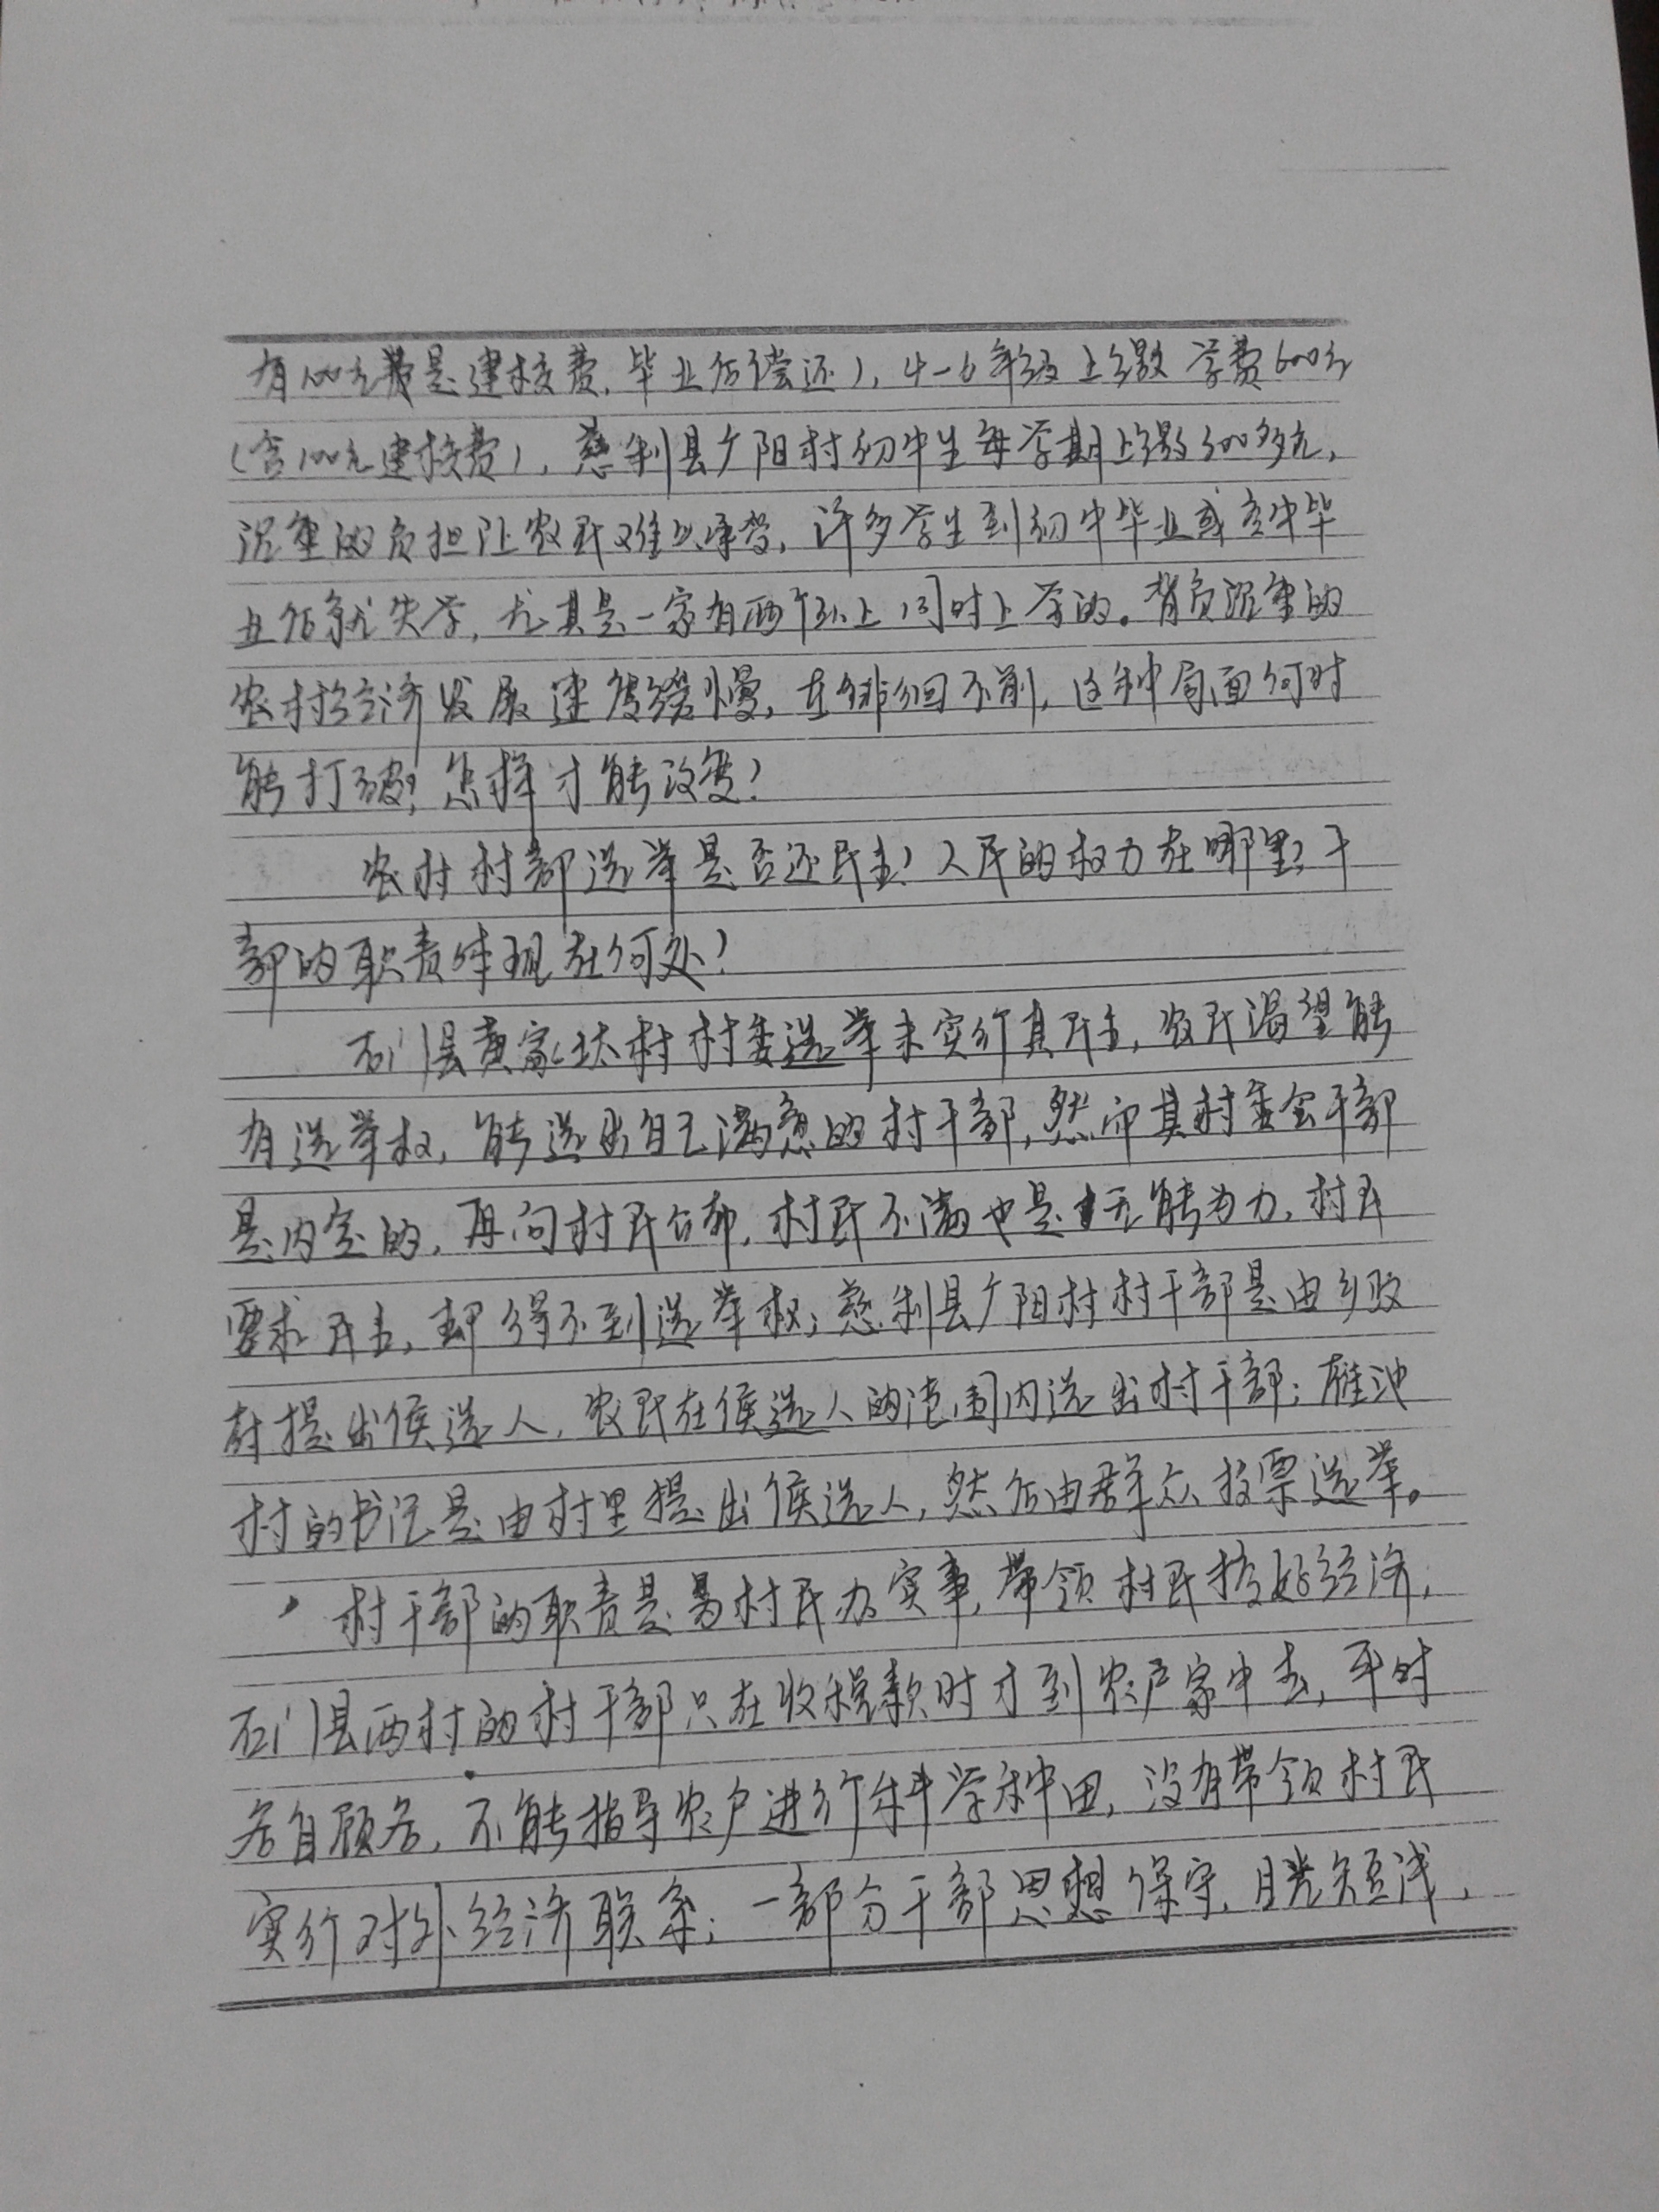 有100元费是建校费,毕业后偿还),4-6年级上缴学费600元
(含100元建校费),慈利县广阳村初中生每学期上缴500多元,
沉重的负担让农民难以承受,许多学生到初中毕业或高中毕
业后就失学,尤其是一家有两个以上同时上学的。背负沉重的
农村经济发展速度缓慢,在徘徊不前,这种局面何时
能打破?怎样才能改变?
农村村部选举是否还民主?人民的权力在哪里?干
部的职责体现在何处?
石门县黄家坟村村委选举未实行真民主,农民渴望能
有选举权,能选出自己满意的村干部,然而其村委会干部
是内定的,再向村民公布,村民不满也是无能为力,村民
要求民主,却得不到选举权;慈利县广阳村村干部是由乡政
府提出候选人,农民在候选人的范围内选出村干部;雁池
村的书记是由村里提出候选人,然后由群众投票选举。
村干部的职责是为村民办实事,带领村民搞好经济,
石门县两村的村干部只在收税款时才到农户家中去,平时
各自顾各,不能指导农户进行科学种田,没有带领村民
实行对外经济联系;一部分干部思想保守,目光短浅,